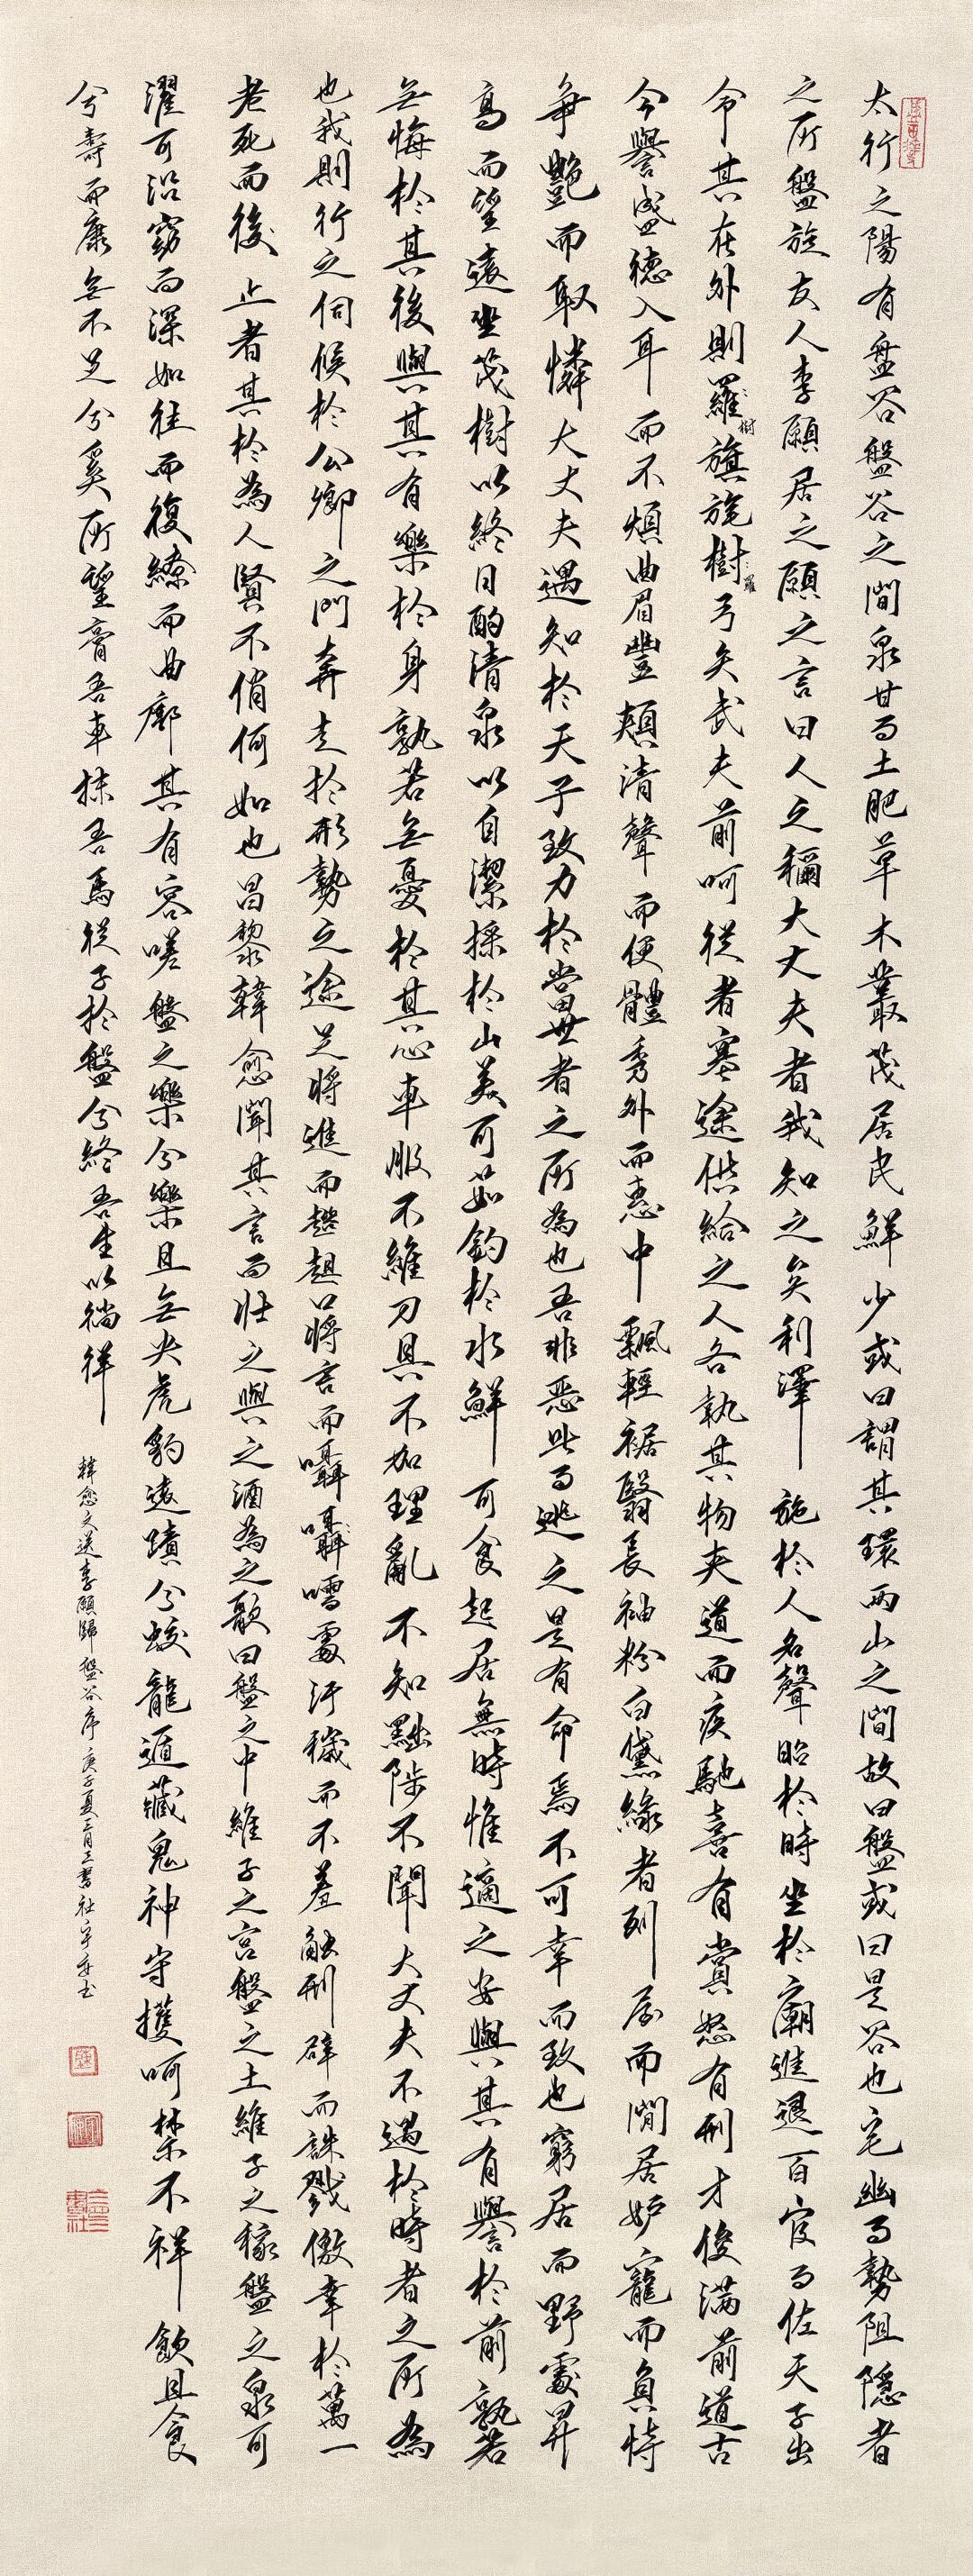 太行之陽有盤谷盤谷之間泉甘而土肥草木叢茂居民鮮少或曰謂其環兩山之間故曰盤或曰是谷也宅幽而勢阻隱者
之所盤旋友人李願居之願之言曰人之稱大丈夫者我知之矣利澤施於人名聲昭於時坐於廟進退百官而佐天子出
令其在外則羅旗旄樹弓矢武夫前呵從者塞途供給之人各執其物夾道而疾馳喜有賞怒有刑才俊滿前道古
樹
羅
今譽盛德入耳而不煩曲眉豐頰清聲而便體秀外而惠中飄輕裾翳長袖粉白黛綠者列屋而閒居妒寵而負恃
爭艷而取憐大丈夫遇知於天子致力於當世者之所為也吾非惡此而逃之是有命焉不可幸而致也窮居而野處昇
高而望遠坐茂樹以終日酌清泉以自潔採於山美可茹釣於水鮮可食起居無時惟適之安與其有譽於前孰若
無悔於其後與其有樂於身孰若無憂於其心車服不維刀具不加理亂不知黜陟不聞大丈夫不遇於時者之所為
也我則行之伺候於公卿之門奔走於形勢之途足將進而趑趄口將言而囁嚅處汙穢而不羞觸刑辟而誅戮僥幸於萬一
老死而後止者其於為人賢不俏何如也昌黎韓愈聞其言而壯之與之酒為之歌曰盤之中維子之宮盤之土維子之稼盤之泉可
濯可沿窈而深如往而復繚而曲廓其有容嗟盤之樂兮樂且無央虎豹遠蹟兮蛟龍遁藏鬼神守護呵禁不祥飲且食
兮壽而康無不足兮奚所望膏吾車秣吾馬從子於盤兮終吾生以徜徉
韓愈文送李願歸盤谷序庚子夏三月三書社